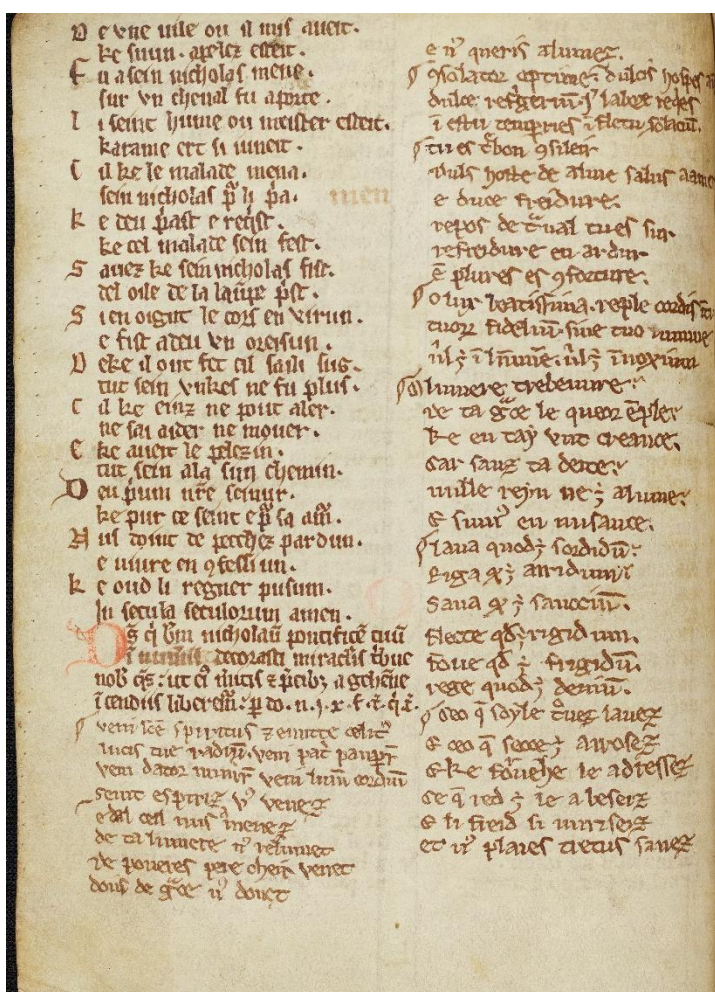 D e vne uile ou il mis aueit.
ke suun. apelez esteit.
F u a sein nicholas mene.
sur vn cheual fu aporte.
I i seint hume ou meister esteit.
karame ert si uineit.
C il ke le malade mena.
sein nicholas p̃ li p̃a.
K e deu p̃ast e reqist.
ke cel malade sein fest.
S auez ke sein nicholas fist.
del oile de la lãpe p̃st.
S i en oigut le cors en virun.
e fist a deu vn oreisun.
D eke il out fet cil saili sus.
tut sein vnkes ne fu plus.
C il ke einz ne pout aler.
ne sai aider ne mouer.
E ke aueit le pelezin.
tut sein ala sun chemin.
D eu p̃um nr̃e seinur.
ke pur ce seint e p̃ sa am̃.
N us doint de pecchez pardun.
e uiure en ꝯfessiun.
K e oud li regner pusum.
In secula seculorum amen.
D s̃ q̃ b̃m nicholaũ pontificẽ tuũ
decorasti miraclis t̃bue
nob̃ q̃s: ut eĩ m̃itis ⁊ p̃cibꝫ a gehẽne
ĩcendiis liberem̃. p̃ do. n. ı. x. f. t̃. q̃. t̃.
veni sc̃e spiritus ⁊ emitte celit᷒
lucis tue radiũ. veni pat̃ paup̃r̃
veni dator muñr̃ veni lum̃ cordiũ
seint espiriz v᷒ venez
e dal cel nus menez
de ta lumere n᷒ relumet
de poueres pere cheir venet
dons de g̃ce n᷒ donet
e n᷒ queris alumez.
ꝯsolator optime: dulcis hospes
dulce refg̃eriũ. ĩ labore reqes
ĩ estu temperies ĩ fletu solaciũ.
tu es t̃bon ꝯsileir
duls hoste de alme salus
e duce freidure.
repos de t̃ual tu es sur
refreidure en ardur
ẽ plures es ꝯforture.
O lux beatissima. reple cordis
tuorꝫ fideliũ. sine tuo numine
ñlꝫ ĩ hõmine. ñlꝫ ĩnoxium
O lumere trebenure:
de ta g̃ce le queor ẽpler
ke en tay vnt creance.
car sanz ta deite:
nulle reyn neꝫ alume:
E sum᷒ en nusance.
laua quodꝫ sordidũ:
Riga qꝫ arridum
Sana qꝫ sauciũ.
flecte qd̃ꝫ rigidum.
foue qd̃ꝫ frigidũ.
rege quodꝫ deuiũ.
Ceo q̃ soyle t̃uez lauez
E ceo q̃ secceꝫ arrosez
E ke f̃uehe le adressez
Ce q̃ redꝫ le abesez
E li freid li nurisez
et n᷒ plaies tretus sanez